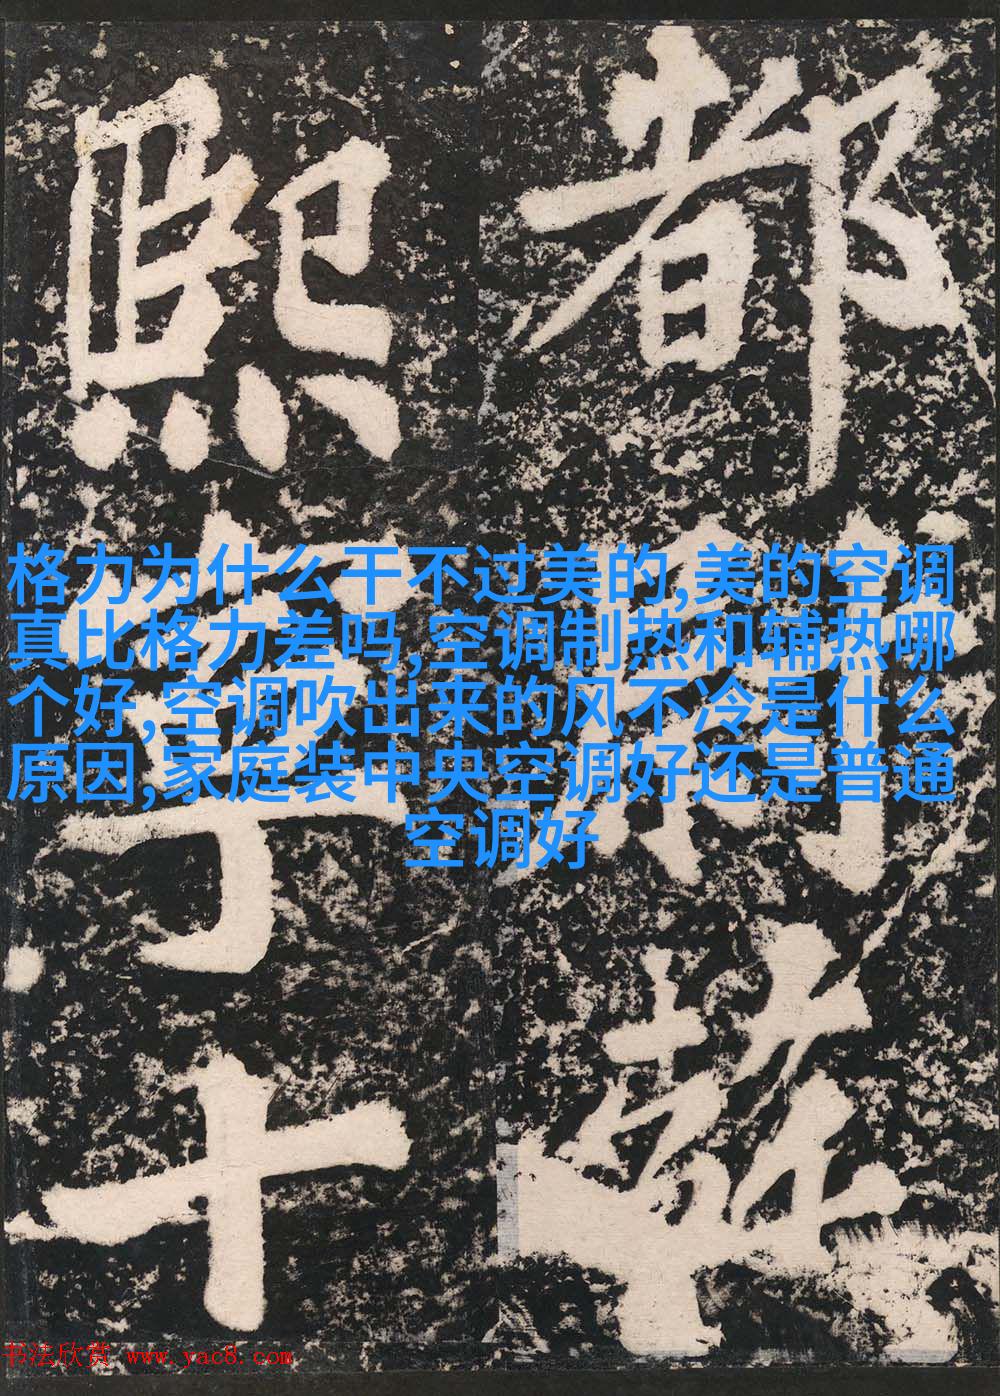 都尉蘇
熙寧十
格力为什么干不过美的,美的空调
真比格力差吗,空调制热和辅热哪
个好,空调吹出来的风不冷是什么
原因,家庭装中央空调好还是普通
空调好
书法欣赏 www.yac8.com